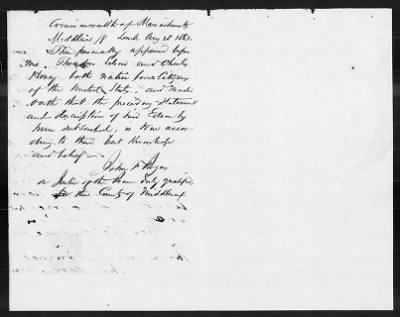 Commonwealth of Massachusetts
Middlesex SS. Lowell Aug 28 1863.
Then personally appeared before
me, Edson and Charles
Hovey both native born Citizens
of the United States, and made
oath that the preceding statement
and description of said Edson by
him subscribed, is true accor
ding to their best knowledge
and belief
John A Rogers
a Justice of the Peace duly qualified
for the County of Middlesex